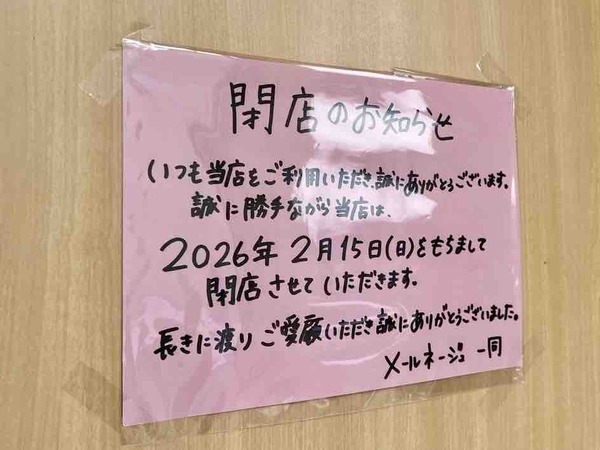 閉店のお知らせ
いつも当店をご利用いただき、誠にありがとうございます。
誠に勝手ながら当店は、
2026年 2月15日(日)をもちまして
閉店させていただきます。
長きに渡り ご愛顧いただき誠にありがとうございました。
メールネージュ 一同